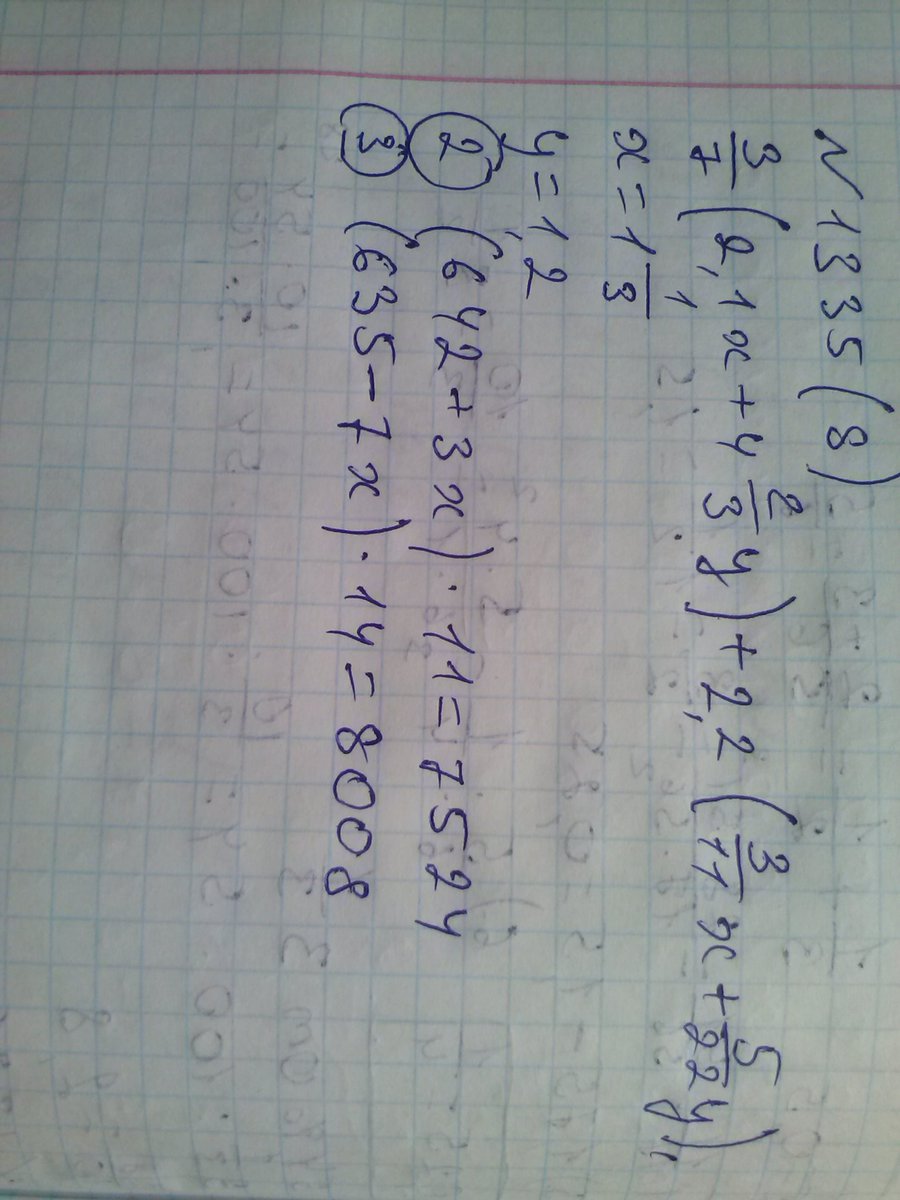 N 1335 (8)
3/7 (2,1x + 4 2/3 y) + 2,2 (3/11 x + 5/22 y),
x = 1 1/3
y = 1,2
2 (642 + 3x) · 11 = 7524
3 (635 - 7x) · 14 = 8008